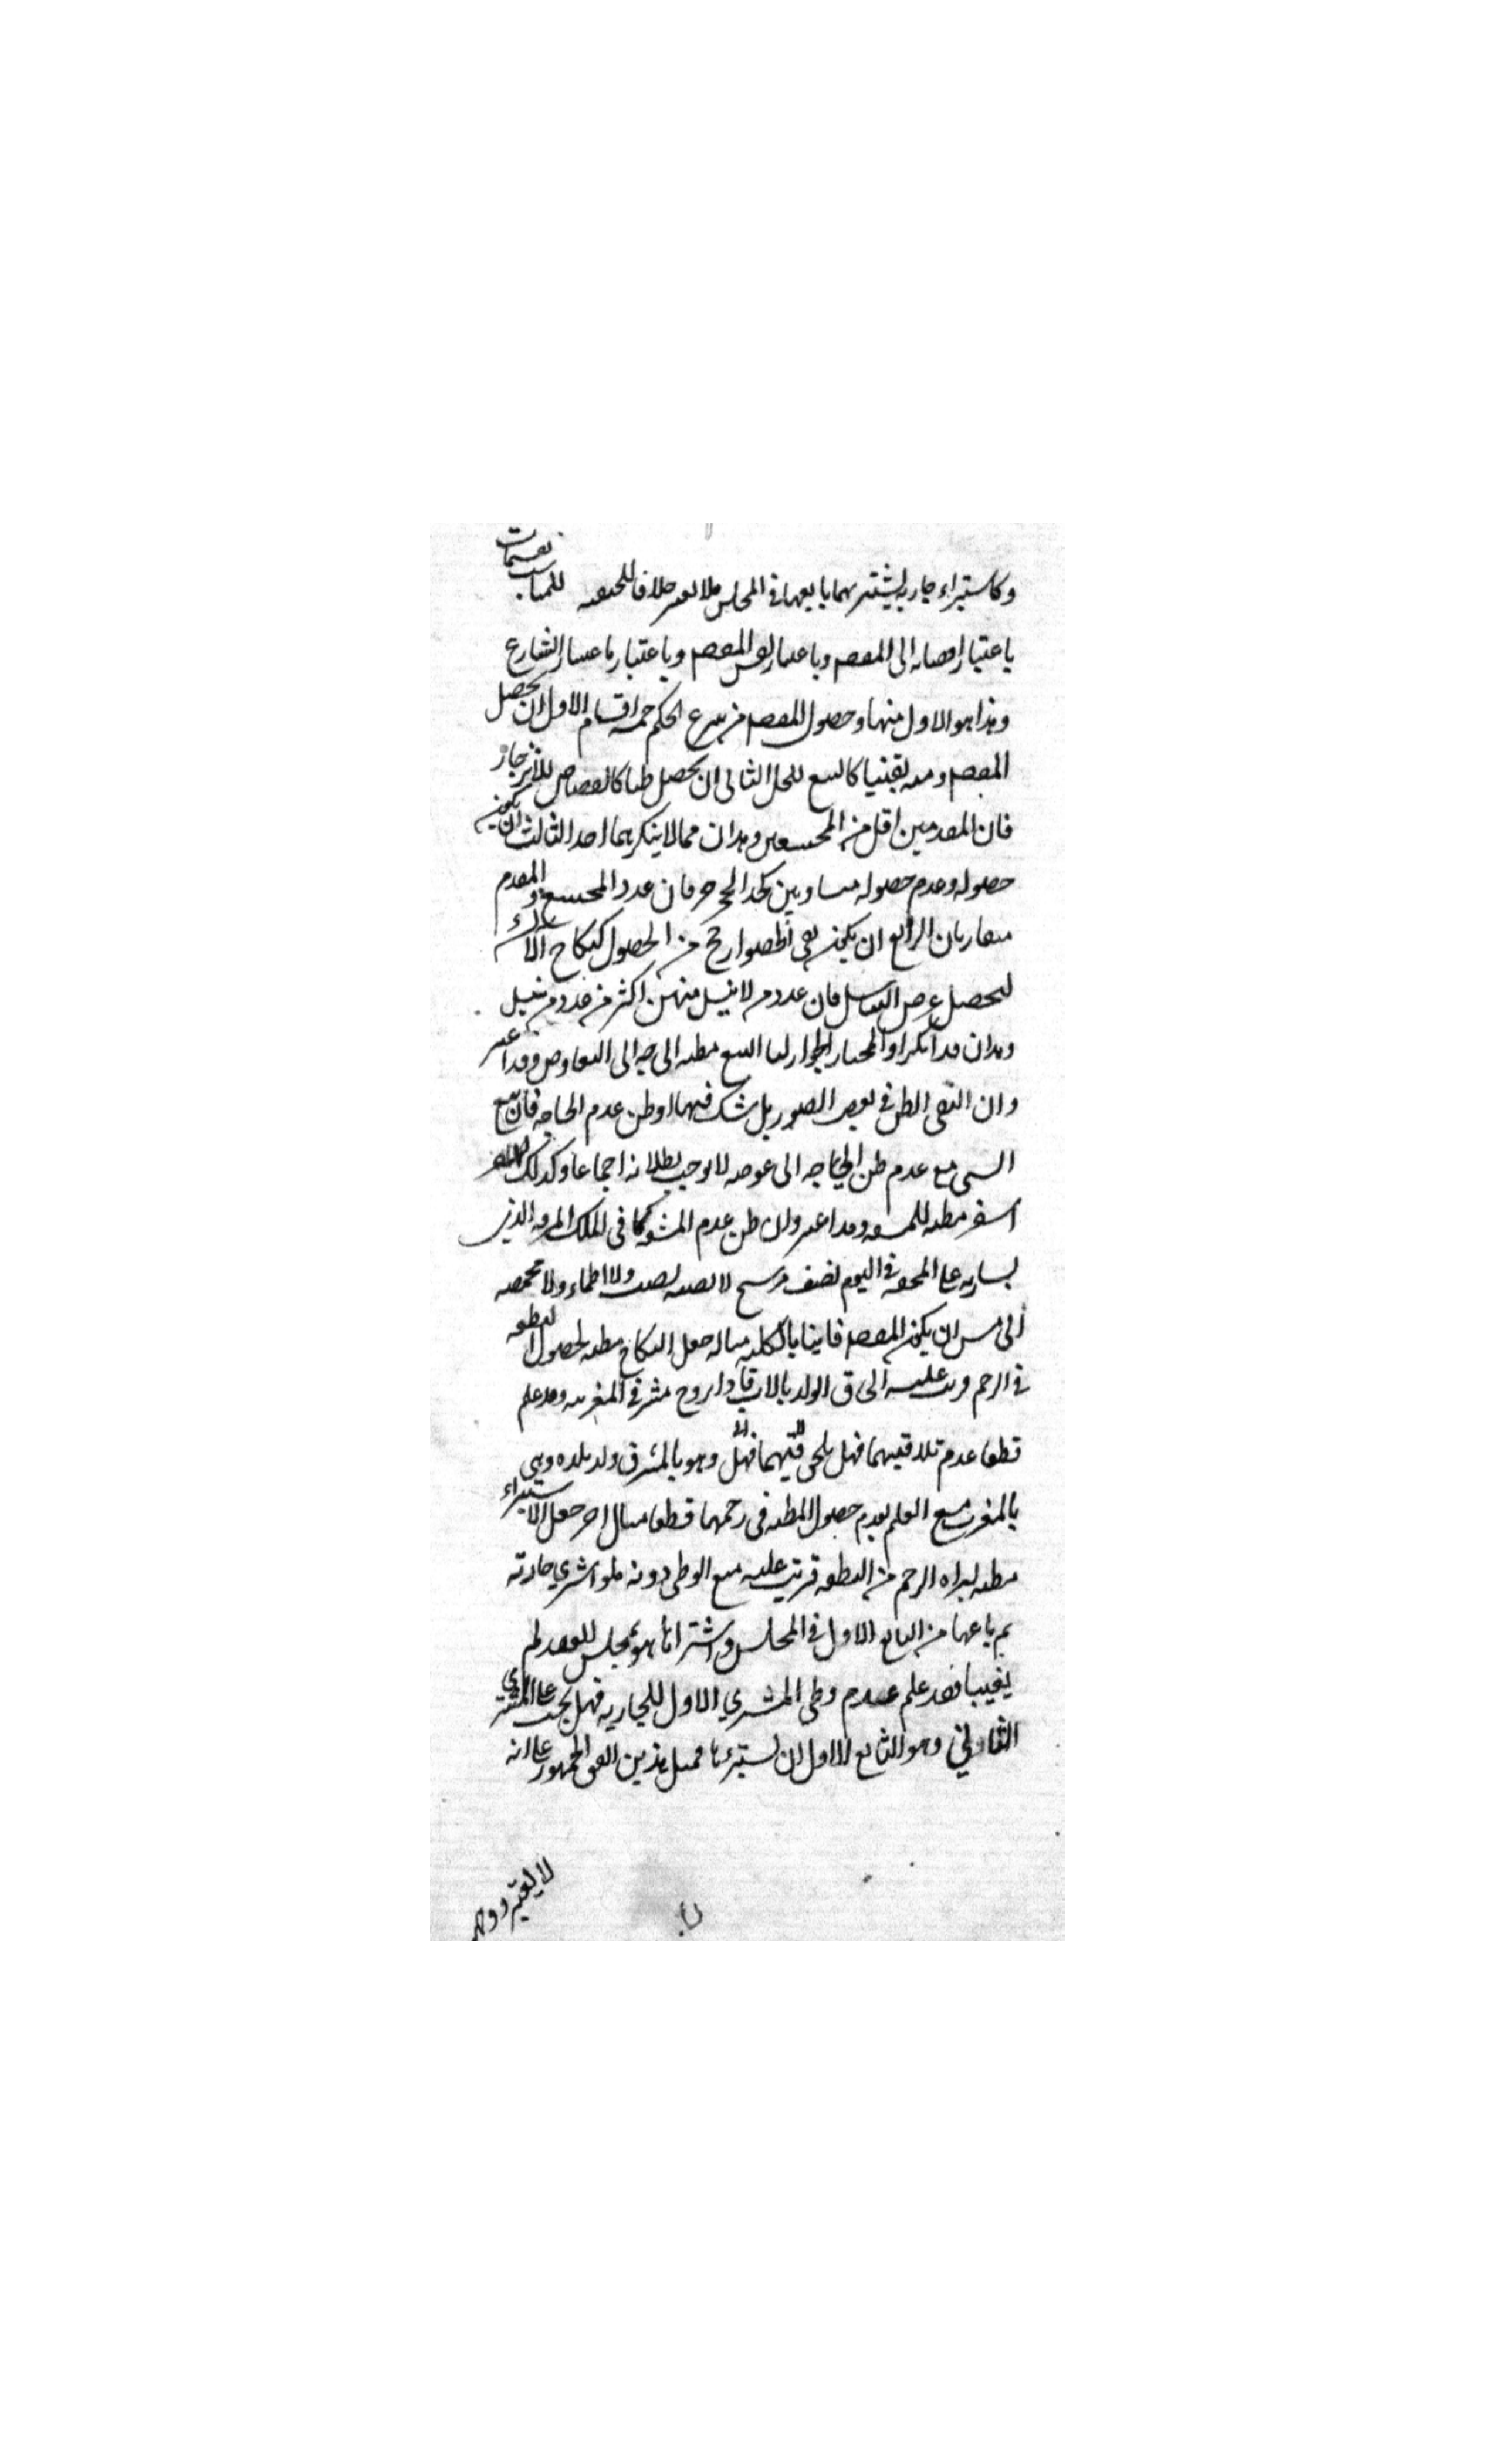 وكاستبراء جارية يشتريها بايعها في المجلس فلا يعتبر خلافا للحنفية للمناسب تقسيمات
باعتبار افضائه الى المقصود وباعتبار نفس المقصود وباعتبار اعتبار الشارع
وهذا هو الاول منها وحصول المقصود من شرع الحكم خمسة اقسام الاول ان يحصل
المقصود منه يقينيا كالبيع للحل الثاني ان يحصل ظنا كالقصاص للانزجار
فان الممتنعين اقل من وهذان مما لا ينكرهما احد الثالث ان يكون
حصوله وعدم حصوله متساويين كحد الخمر فان عدد الممتنع والمقدم
متقاربان الرابع ان يكون نفي الحصول ارجح من الحصول كنكاح الآئسة
لتحصيل غرض التناسل فان عدد من لا ينسل منهن اكثر من عدد من ينسل
وهذان قد انكرا والمختار الجواز لنا البيع مظنة الحاجة الى التعاوض وقد اعتبر
وان انتفى الظن في بعض الصور بل شك فيها او ظن عدم الحاجة فان بيع
الشي مع عدم ظن الحاجة الى عوضه لا يوجب بطلانه اجماعا وكذلك
السفر مظنة للمشقة وقد اعتبر وان ظن عدم المشقة كما في الملك المرفه الذي
يسار به على المحفة في اليوم نصف فرسخ لا يصيبه نصب ولا ظماء ولا مخمصة
الخامس ان يكون المقصود فايتا بالكلية مثاله جعل النكاح مظنة لحصول النطفة
في الرحم فرتب عليه الحاق الولد بالاب فاذا تزوج مشرقي المغربية وقد علم
قطعا عدم تلاقيهما فهل يلحق وهو بالمشرق ولد تلده وهي
بالمغرب مع العلم بعدم حصول النطفة في رحمها قطعا مثال اخر جعل الاستبراء
مظنة لبراءة الرحم من النطفة فرتب عليه منع الوطى دونه فلو اشترى جارية
ثم باعها من البايع الاول في المجلس واشتراها هو بمجلس العقد لم
يغيبا فقد علم عدم وطى المشتري الاول للجارية فهل يجب على المشتري
الثاني وهو البايع الاول ان يستبرئها فمثل هذين اتفق الجمهور على انه
لا يعتبر ووجه